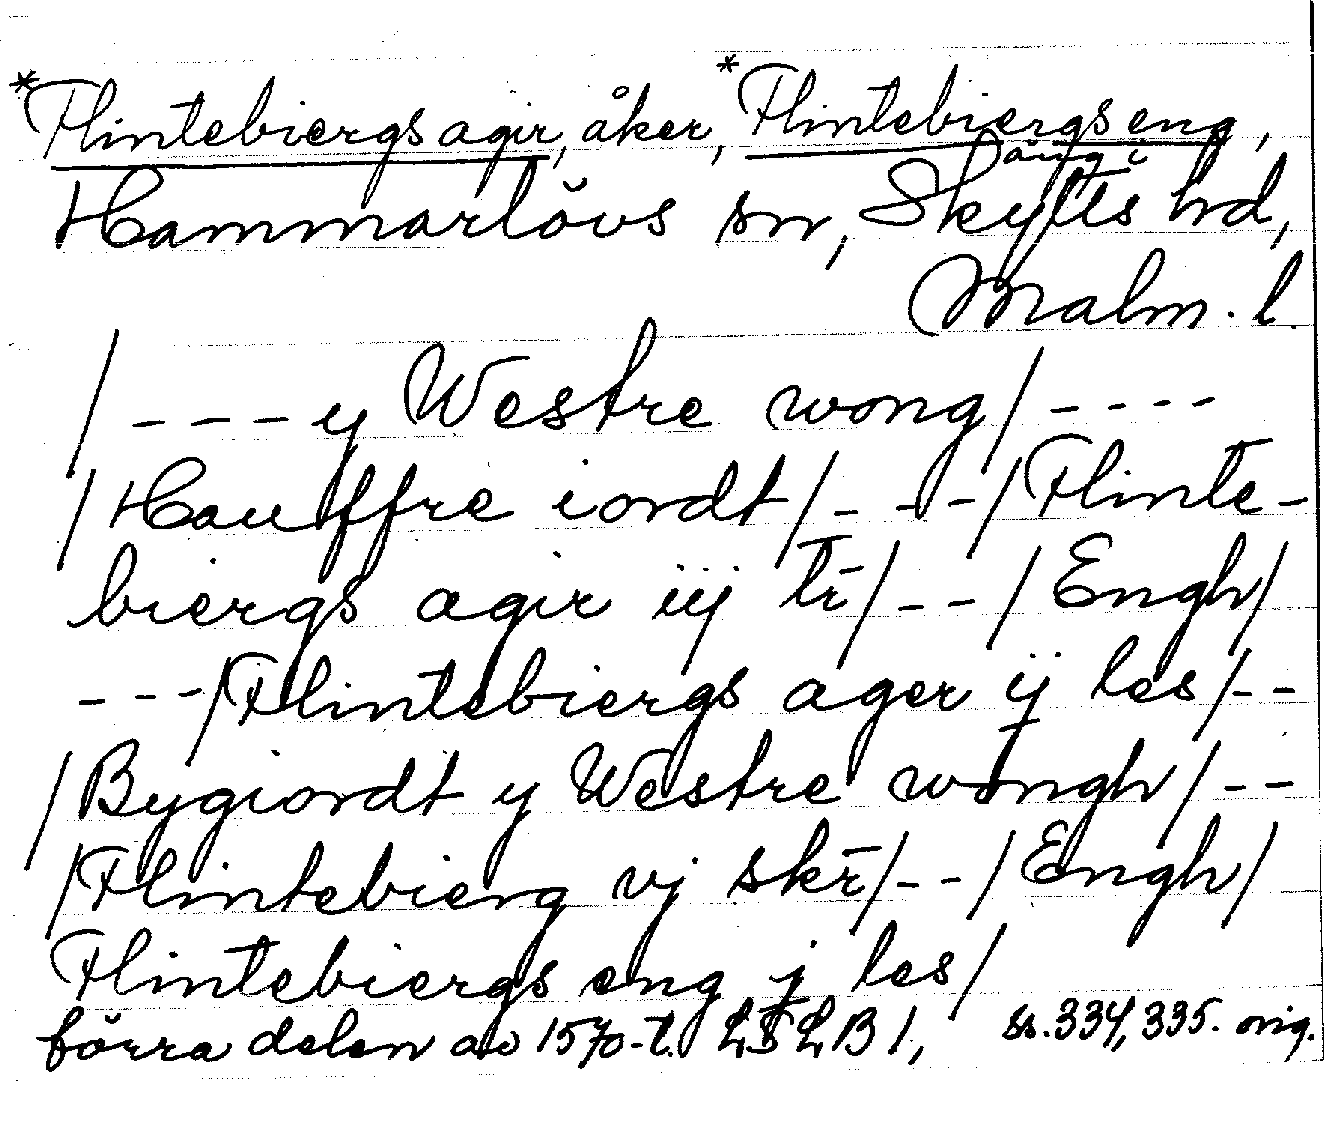 *Flintebiergs agir, åker, *Flintebiergs eng,
äng i
Hammarlövs sn, Skytts hd,
Malm. l.
/ - - - y Westre wong / - - - -
/ Hauffre iordt / - - - / Flinte-
biergs agir iij tr̄ / - - / Engh /
- - - / Flintebiergs ager ij les / - -
/ Bygiordt y Westre wongh / - -
/ Flintebierg vj skr̄ / - - / Engh /
Flintebiergs eng j les /
förra delen av 1570-t. LSLB 1, ss. 334, 335. orig.